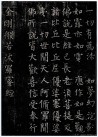 一切有為法 如夢幻泡影
如露亦如電 應作如是觀
佛說是經已長老須菩提及
諸比丘比丘尼優婆塞優婆
夷一切世間天人阿修羅聞
佛所說皆大歡喜信受奉行
金剛般若波羅蜜經